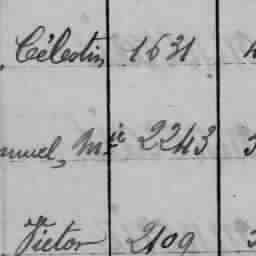 Célestin 1631
anuel, Mie 2243
Victor 2109